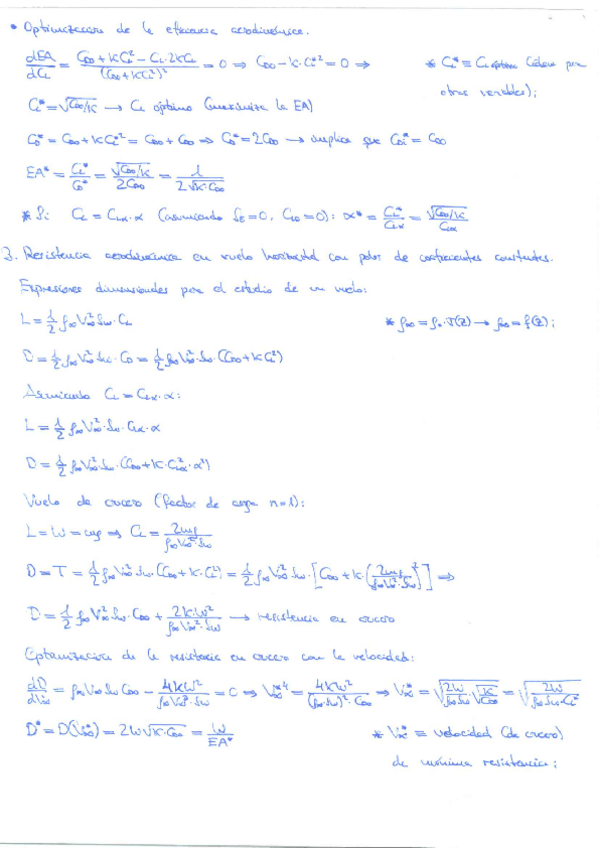 • Optimización de la eficiencia aerodinámica.
dEA/dCL = (CD0 + kCL² − CL·2kCL)/(CD0 + kCL²)² = 0 ⇒ CD0 − k·CL*² = 0 ⇒ * CL* ≡ CL óptimo (ídem por
otras variables);
CL* = √(CD0/k) → CL óptimo (maximiza la EA)
CD* = CD0 + kCL*² = CD0 + CD0 ⇒ CD* = 2CD0 → implica que CDi* = CD0
EA* = CL*/CD* = √(CD0/k)/(2CD0) = 1/(2√(k·CD0))
* Si: CL = CLα·α (asumiendo δE = 0, CL0 = 0): α* = CL*/CLα = √(CD0/k)/CLα
3. Resistencia aerodinámica en vuelo horizontal con polar de coeficientes constantes.
Expresiones dimensionales por el estudio de un vuelo:
L = 1/2 ρ∞V∞²Sw·CL * ρ∞ = ρ0·σ(z) → ρ∞ = f(z);
D = 1/2 ρ∞V∞²·Sw·CD = 1/2 ρ∞V∞²·Sw·(CD0 + kCL²)
Asumiendo CL = CLα·α:
L = 1/2 ρ∞V∞²·Sw·CLα·α
D = 1/2 ρ∞V∞²·Sw·(CD0 + k·CLα²·α²)
Vuelo de crucero (factor de carga n=1):
L = W = mg ⇒ CL = 2mg/(ρ∞V∞²Sw)
D = T = 1/2 ρ∞V∞²Sw·(CD0 + k·CL²) = 1/2 ρ∞V∞²Sw·[CD0 + k·(2mg/(ρ∞V∞²Sw))²] ⇒
D = 1/2 ρ∞V∞²Sw·CD0 + 2k·W²/(ρ∞V∞²·Sw) → resistencia en crucero
Optimización de la resistencia en crucero con la velocidad:
dD/dV∞ = ρ∞V∞SwCD0 − 4kW²/(ρ∞V∞³·Sw) = 0 ⇒ V∞*⁴ = 4kW²/((ρ∞·Sw)²·CD0) ⇒ V∞* = √(2W/(ρ∞Sw)·√(k/CD0)) = √(2W/(ρ∞Sw·CL*))
D* = D(V∞*) = 2W√(k·CD0) = W/EA* * V∞* ≡ velocidad (de crucero)
de mínima resistencia;